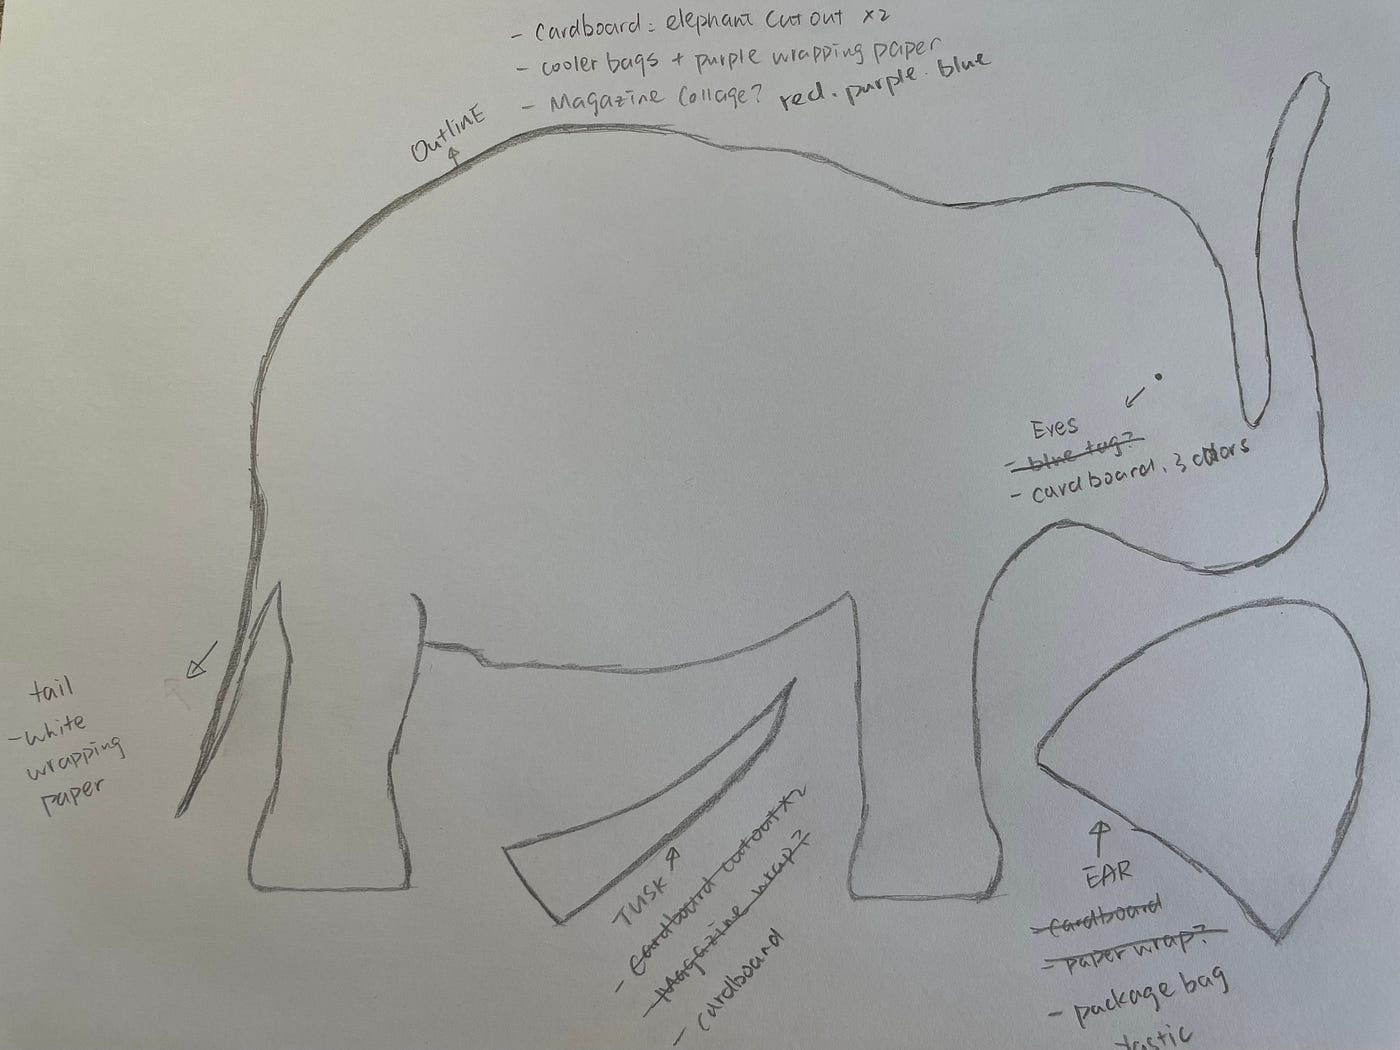 - Cardboard: elephant cut out x2
- cooler bags + purple wrapping paper
- Magazine Collage? red. purple. blue
OutlinE
Eyes
- blue tag?
- cardboard. 3 colors
tail
- white
wrapping
paper
TUSK
- Cardboard cutout x2
- Magazine wrap?
- cardboard
EAR
- Cardboard
- paper wrap?
- package bag